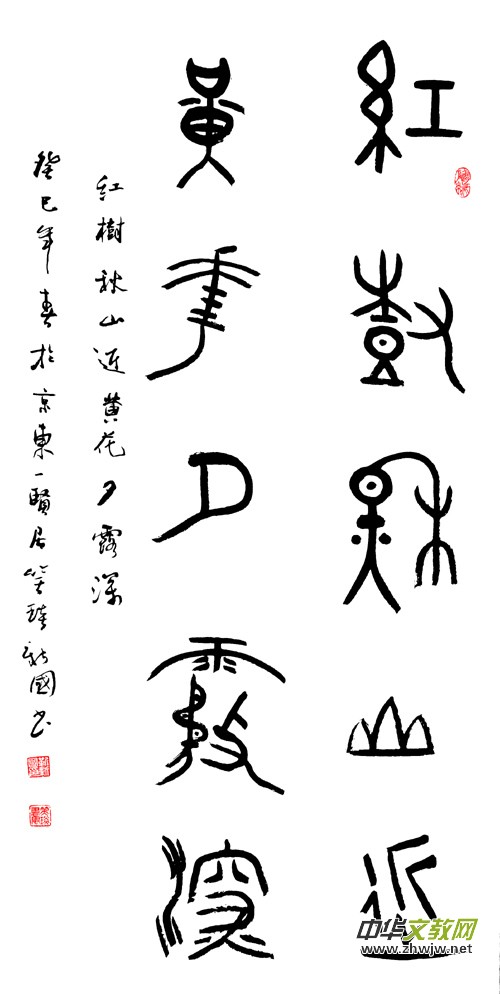 紅樹秋山近
黃花夕露深
红樹秋山近黄花夕露深
癸巳年春於京東一賢居笑琰新國书
中华文教网
www.zhwjw.net